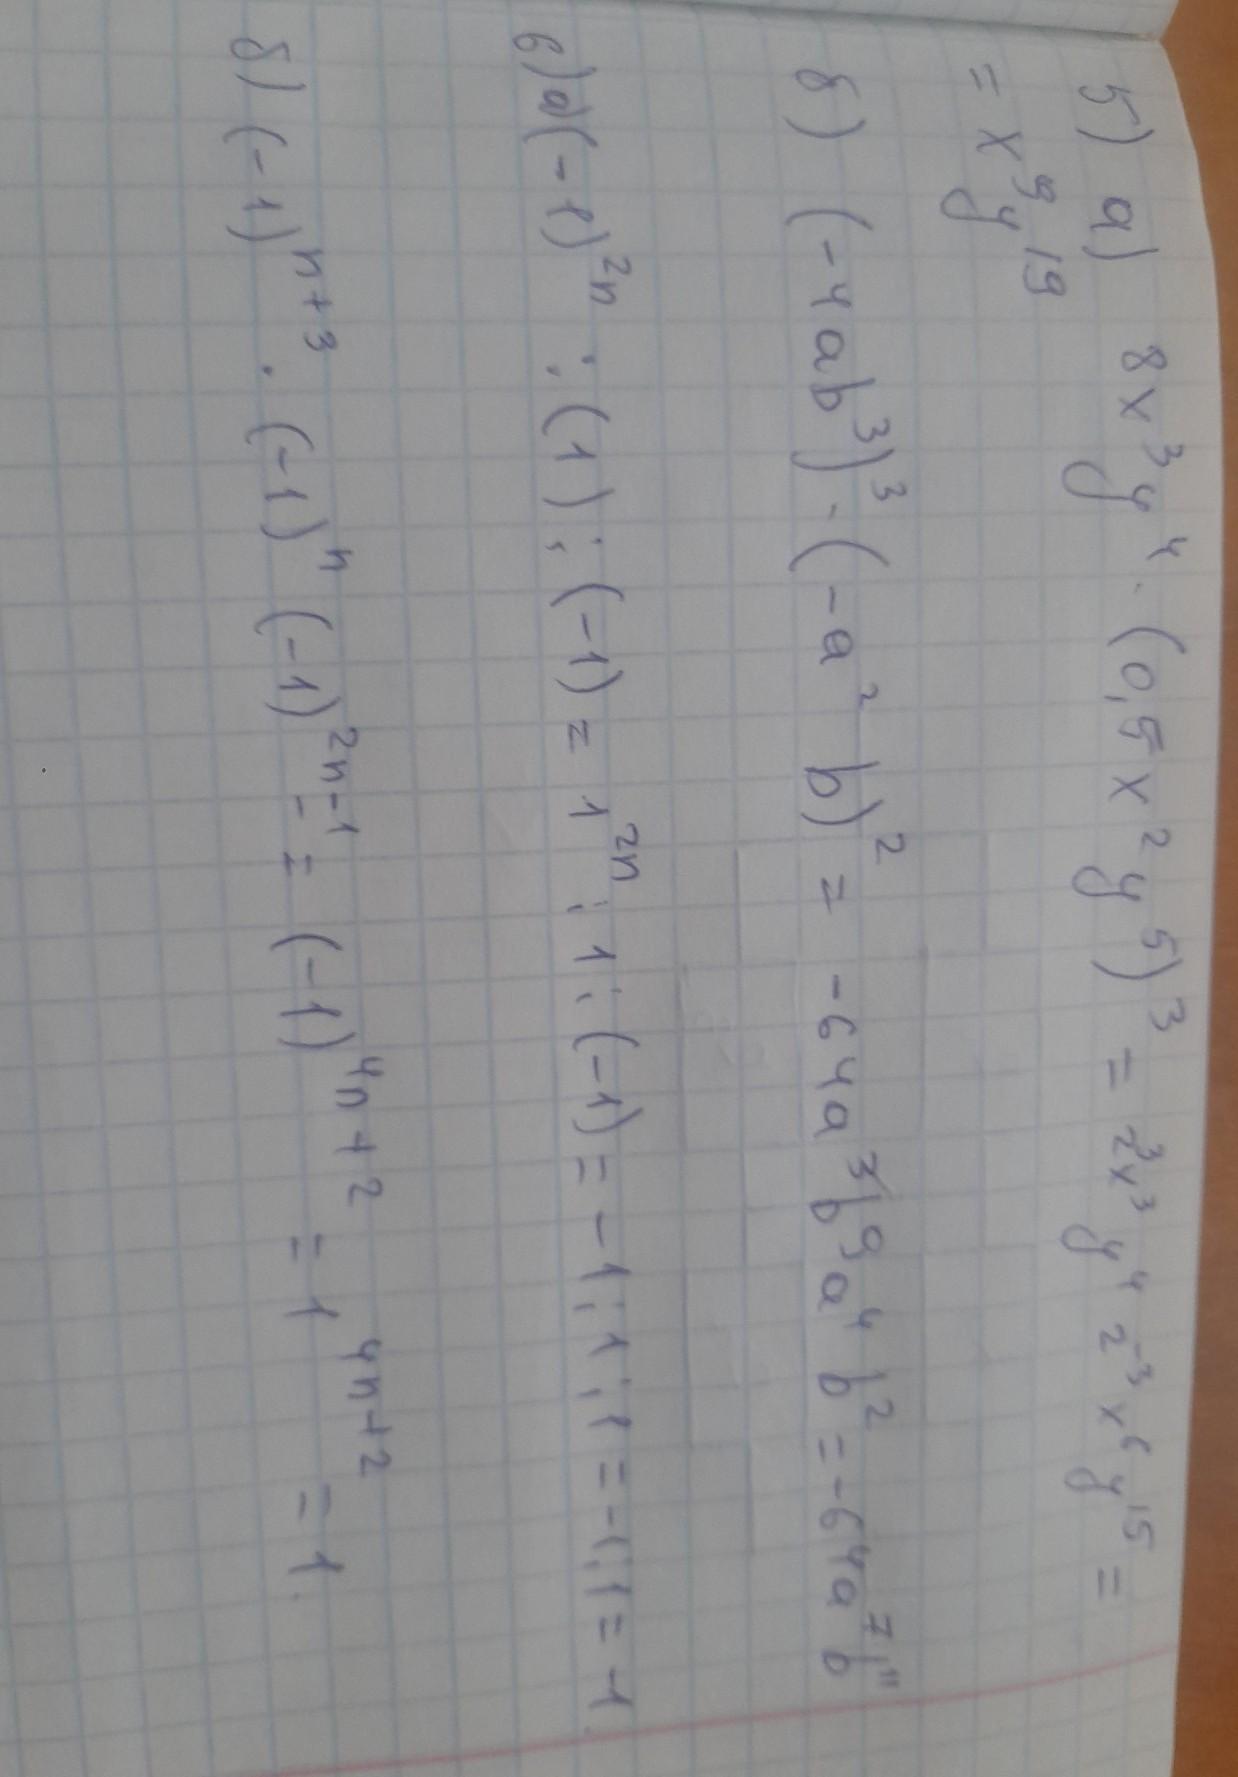 5) а) 8x³y⁴ · (0,5x²y⁵)³ = 2³x³y⁴ 2⁻³x⁶y¹⁵ =
= x⁹y¹⁹
б) (-4ab³)³ · (-a² b)² = -64a³b⁹a⁴b² = -64a⁷b¹¹
6) а) (-1)²ⁿ : (1) : (-1) = 1²ⁿ : 1 : (-1) = -1 : 1 : 1 = -1 : 1 = -1
б) (-1)ⁿ⁺³ · (-1)ⁿ (-1)²ⁿ⁻¹ = (-1)⁴ⁿ⁺² = 1⁴ⁿ⁺² = 1.